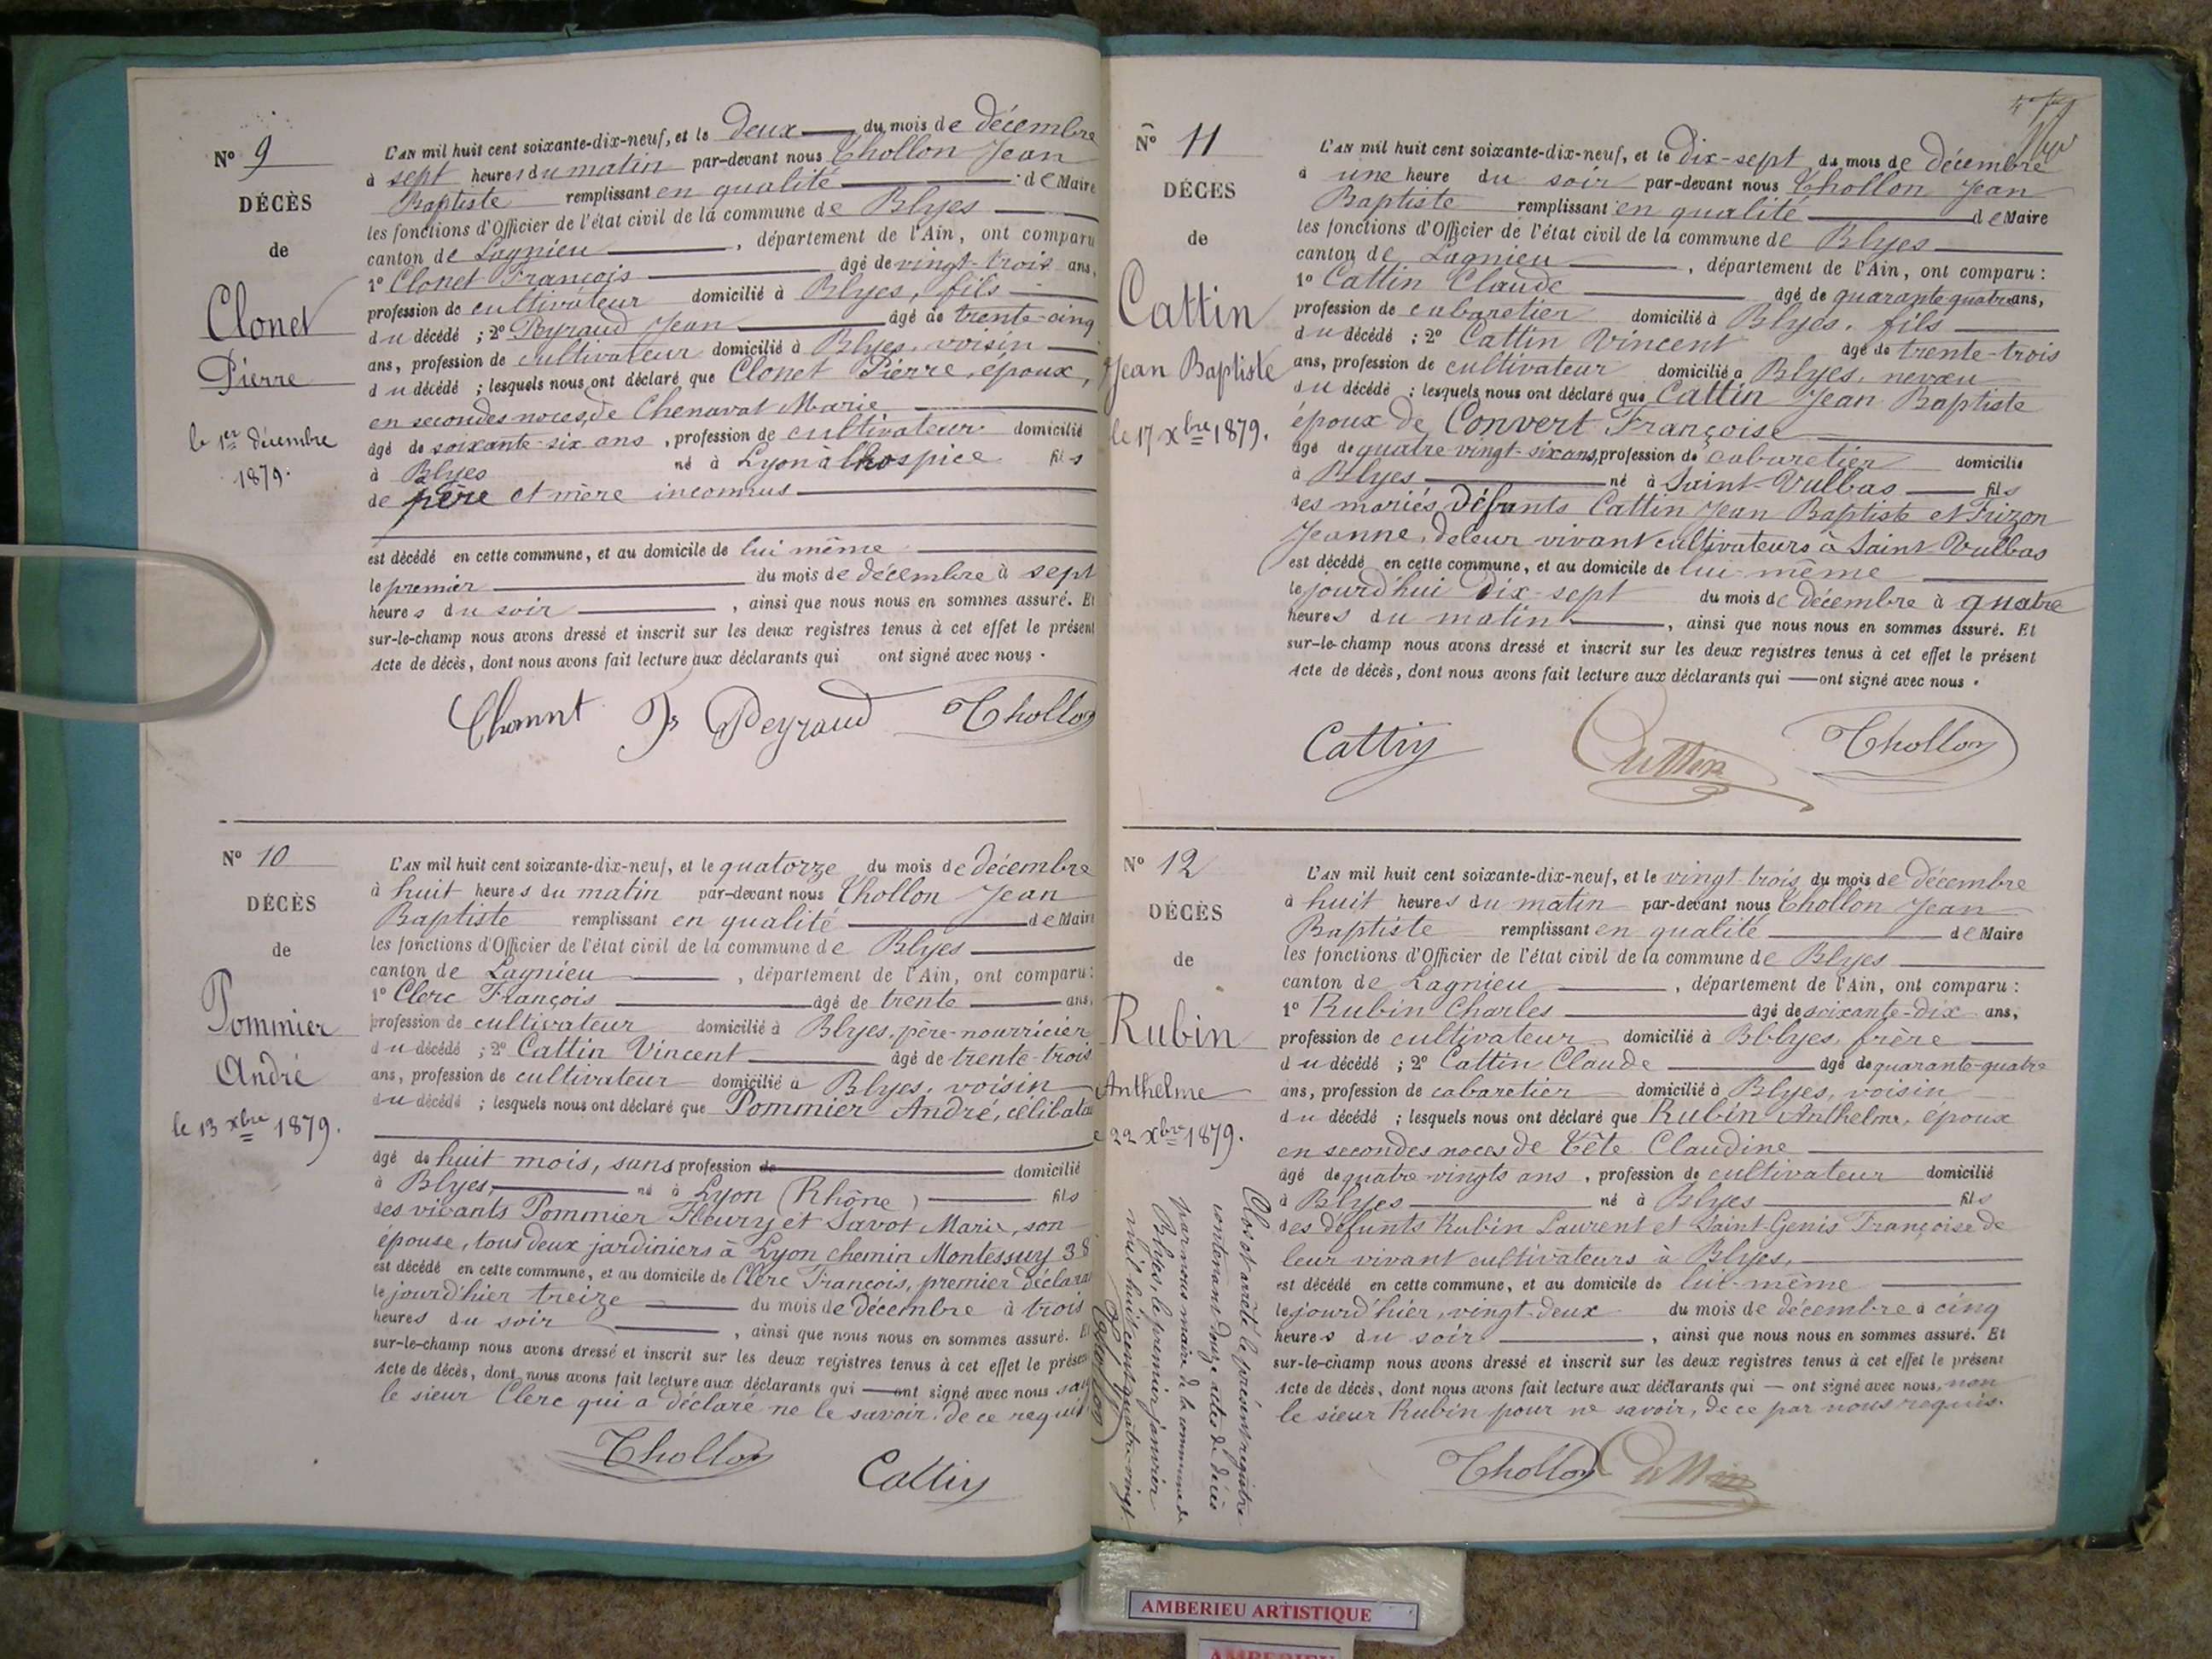 N° 9
DÉCÈS
de
Clonet
Pierre
le 1er décembre
1879.
L'AN mil huit cent soixante-dix-neuf, et le deux du mois de décembre
à sept heures du matin par-devant nous Chollon Jean
Baptiste remplissant en qualité de Maire
les fonctions d'Officier de l'état civil de la commune de Blyes
canton de Lagnieu, département de l'Ain, ont comparu
1° Clonet François âgé de vingt-trois ans,
profession de cultivateur domicilié à Blyes, fils
du décédé ; 2° Peyraud Jean âgé de trente-cinq
ans, profession de cultivateur domicilié à Blyes, voisin
du décédé ; lesquels nous ont déclaré que Clonet Pierre, époux,
en secondes noces, de Chenavat Marie
âgé de soixante-six ans, profession de cultivateur domicilié
à Blyes né à Lyon à l'hospice fils
de père et mère inconnus
est décédé en cette commune, et au domicile de lui même
le premier du mois de décembre à sept
heures du soir, ainsi que nous nous en sommes assuré. Et
sur-le-champ nous avons dressé et inscrit sur les deux registres tenus à cet effet le présent
Acte de décès, dont nous avons fait lecture aux déclarants qui ont signé avec nous.
Peyraud Chollon
N° 10
DÉCÈS
de
Pommier
André
le 13 xbre 1879.
L'AN mil huit cent soixante-dix-neuf, et le quatorze du mois de décembre
à huit heures du matin par-devant nous Chollon Jean
Baptiste remplissant en qualité de Maire
les fonctions d'Officier de l'état civil de la commune de Blyes
canton de Lagnieu, département de l'Ain, ont comparu :
1° Clerc François âgé de trente ans,
profession de cultivateur domicilié à Blyes, père-nourricier
du décédé ; 2° Cattin Vincent âgé de trente-trois
ans, profession de cultivateur domicilié à Blyes, voisin
du décédé ; lesquels nous ont déclaré que Pommier André, célibatai
âgé de huit mois, sans profession de domicilié
à Blyes, né à Lyon (Rhône) fils
des vivants Pommier Fleury et Savot Marie, son
épouse, tous deux jardiniers à Lyon chemin Montessuy 38
est décédé en cette commune, et au domicile de Clerc François, premier déclara
le jourd'hier treize du mois de décembre à trois
heures du soir, ainsi que nous nous en sommes assuré. Et
sur-le-champ nous avons dressé et inscrit sur les deux registres tenus à cet effet le présen
Acte de décès, dont nous avons fait lecture aux déclarants qui ont signé avec nous sauf
le sieur Clerc qui a déclaré ne le savoir. de ce requis
Chollon Cattin
N° 11
DÉCÈS
de
Cattin
Jean Baptiste
le 17 xbre 1879.
L'AN mil huit cent soixante-dix-neuf, et le dix-sept du mois de décembre
à une heure du soir par-devant nous Chollon Jean
Baptiste remplissant en qualité de Maire
les fonctions d'Officier de l'état civil de la commune de Blyes
canton de Lagnieu, département de l'Ain, ont comparu :
1° Cattin Claude âgé de quarante quatre ans,
profession de cabaretier domicilié à Blyes, fils
du décédé ; 2° Cattin Vincent âgé de trente-trois
ans, profession de cultivateur domicilié à Blyes, neveu
du décédé ; lesquels nous ont déclaré que Cattin Jean Baptiste
époux de Convert Françoise
âgé de quatre vingt-six ans, profession de cabaretier domicilié
à Blyes né à Saint-Vulbas fils
des mariés défunts Cattin Jean Baptiste et Frizon
Jeanne, de leur vivant cultivateurs à Saint Vulbas
est décédé en cette commune, et au domicile de lui-même
le jourd'hui dix-sept du mois de décembre à quatre
heures du matin, ainsi que nous nous en sommes assuré. Et
sur-le-champ nous avons dressé et inscrit sur les deux registres tenus à cet effet le présent
Acte de décès, dont nous avons fait lecture aux déclarants qui ont signé avec nous.
Cattin Cattin Chollon
N° 12
DÉCÈS
de
Rubin
Anthelme
22 xbre 1879.
L'AN mil huit cent soixante-dix-neuf, et le vingt-trois du mois de décembre
à huit heures du matin par-devant nous Chollon Jean
Baptiste remplissant en qualité de Maire
les fonctions d'Officier de l'état civil de la commune de Blyes
canton de Lagnieu, département de l'Ain, ont comparu :
1° Rubin Charles âgé de soixante-dix ans,
profession de cultivateur domicilié à Bblyes, frère
du décédé ; 2° Cattin Claude âgé de quarante-quatre
ans, profession de cabaretier domicilié à Blyes, voisin
du décédé ; lesquels nous ont déclaré que Rubin Anthelme, époux
en secondes noces de Tête Claudine
âgé de quatre vingts ans, profession de cultivateur domicilié
à Blyes né à Blyes fils
des défunts Rubin Laurent et Saint-Genis Françoise de
leur vivant cultivateurs à Blyes,
est décédé en cette commune, et au domicile de lui-même
le jourd'hier, vingt-deux du mois de décembre à cinq
heures du soir, ainsi que nous nous en sommes assuré. Et
sur-le-champ nous avons dressé et inscrit sur les deux registres tenus à cet effet le présent
Acte de décès, dont nous avons fait lecture aux déclarants qui — ont signé avec nous, non
le sieur Rubin pour ne savoir, de ce par nous requis.
Chollon Cattin
Clos et arrêté le présent registre
contenant douze actes de décès
par nous maire de la commune de
Blyes, le premier janvier
mil huit cent quatre-vingt.
Chollon
AMBERIEU ARTISTIQUE
AMBERIEU